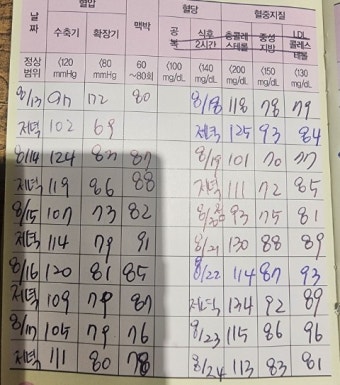 날짜 혈압 맥박 혈당 혈중지질
수축기 확장기 공복 식후 2시간 총콜레스테롤 중성지방 LDL 콜레스테롤
정상범위 <120 mmHg <80 mmHg 60~80회 <100 mg/dL <140 mg/dL <200 mg/dL <150 mg/dL <130 mg/dL
8/13 72 80 8/18 118 78 79
저녁 102 69 저녁 125 93 84
8/14 124 83 87 8/19 101 70 77
저녁 119 86 88 저녁 111 72 85
8/15 107 73 82 93 75 81
저녁 114 79 91 8/21 130 88 89
8/16 120 81 85 8/22 114 87 93
저녁 109 79 87 저녁 134 92 89
8/17 105 79 76 8/23 115 86 96
저녁 111 80 78 8/24 113 83 81